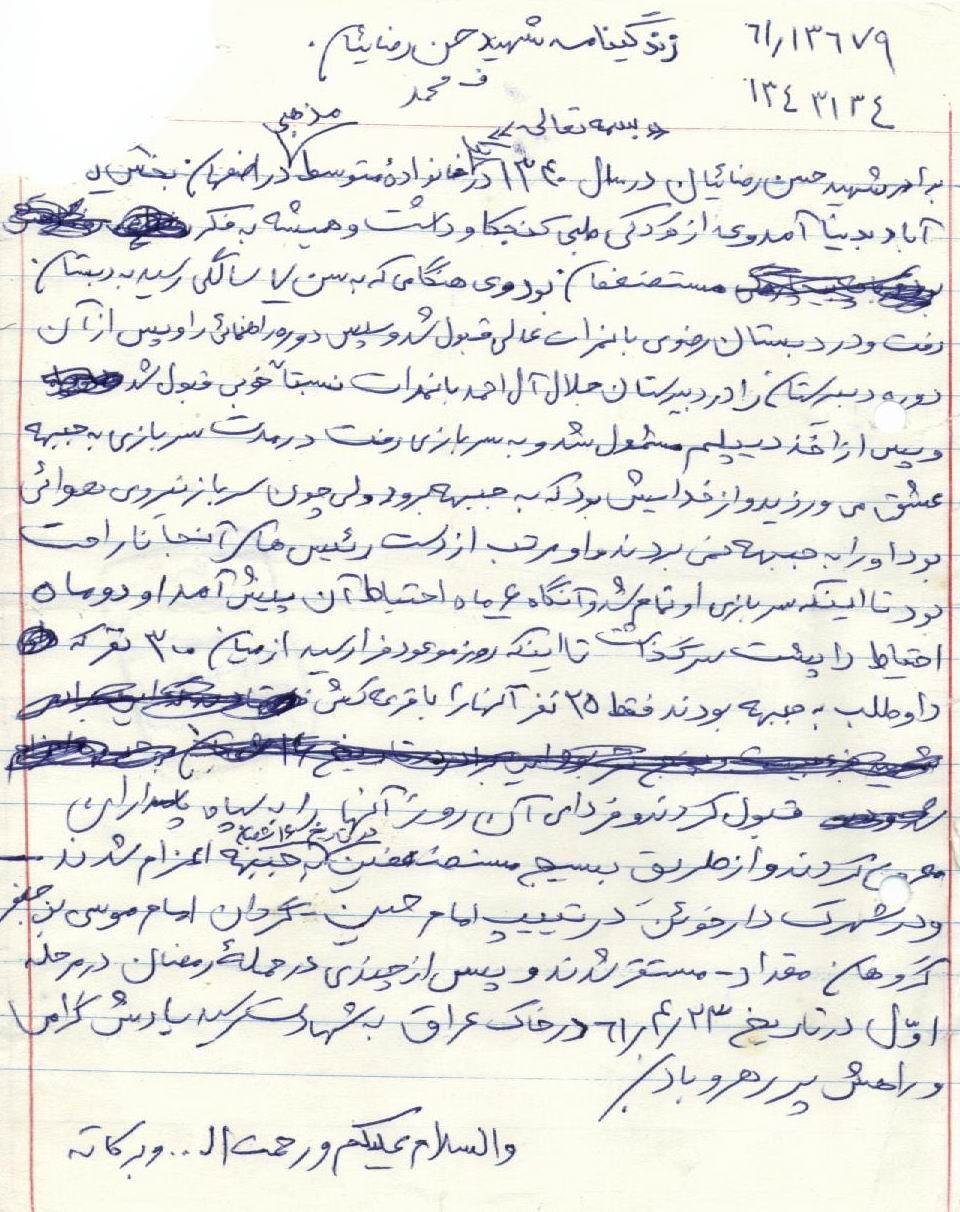 زندگینامه شهید حسن رضائیان . ٦١/١٣٦٧٩
ف محمد ١٣٤٣١٣٤
«بسمه تعالی»
برادر شهید حسن رضائیان در سال ۱۳۴۰ در خانواده متوسط مذهبی در اصفهان بخش
آباد بدنیا آمد وی از کودکی طبعی کنجکاو داشت و همیشه به فکر
مستضعفان بود وی هنگامی که به سن ۷ سالگی رسید به دبستان
رفت و در دبستان رضوی با نمرات عالی قبول شد و سپس دوره راهنمائی را و پس از آن
دوره دبیرستان را در دبیرستان جلال آل احمد با نمرات نسبتاً خوبی قبول شد
و پس از اخذ دیپلم مشمول شد و به سربازی رفت در مدت سربازی به جبهه
عشق می ورزید و از خدایش بود که به جبهه برود ولی چون سرباز نیروی هوائی
بود او را به جبهه نمی بردند و او مرتب از دست رئیس های آنجا ناراحت
بود تا اینکه سربازی او تمام شد و آنگاه ۶ ماه احتیاط آن پیش آمد او دو ماه
احتیاط را پشت سر گذاشت تا اینکه روز موعود فرا رسید از میان ۳۰۰ نفر که
داوطلب به جبهه بودند فقط ۲۵ نفر آنها را با قرعه کشی
قبول کردند و فردای آن روز آنها را به سپاه پاسداران
معرفی کردند و از طریق بسیج مستضعفین در تاریخ به جبهه اعزام شدند
و در شهرک دارخوئین در تیپ امام حسین - گردان امام موسی بن جعفر
گروهان مقداد - مستقر شدند و پس از چندی در حمله رمضان در مرحله
اوّل در تاریخ ۲۳/۴/٦١ در خاک عراق به شهادت رسید یادش گرامی
و راهش پر رهرو باد.
والسلام علیکم و رحمت ال.. و برکاته